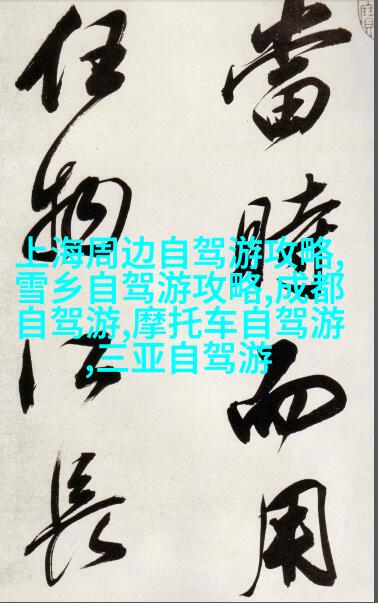 當時而用
任物長
上海周边自驾游攻略,
雪乡自驾游攻略,成都
自驾游,摩托车自驾游
,三亚自驾游